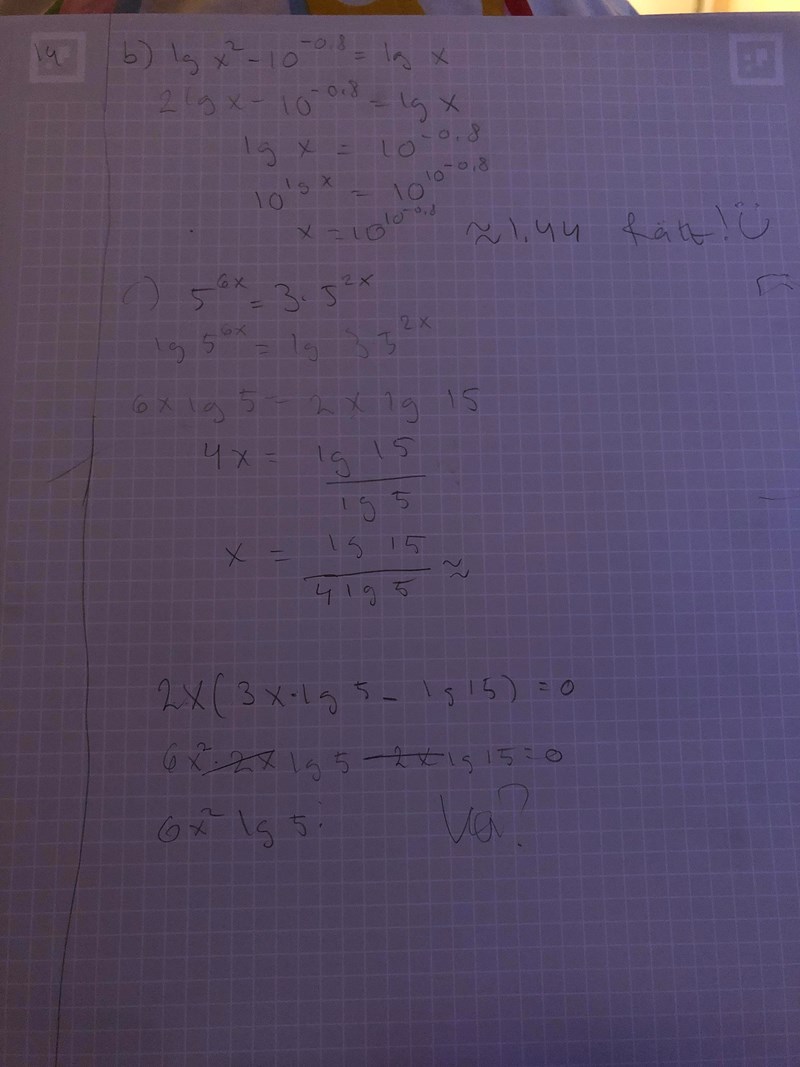 14 b) lg x² - 10^-0,8 = lg x
2 lg x - 10^-0,8 = lg x
lg x = 10^-0,8
10^lg x = 10^10^-0,8
x = 10^10^-0,8 ≈ 1,44 Rätt! Ü
c) 5^6x = 3 · 5^2x
lg 5^6x = lg 3 5^2x
6x lg 5 = 2x lg 15
4x = lg 15 / lg 5
x = lg 15 / 4 lg 5 ≈
2x(3x · lg 5 - lg 15) = 0
6x² · 2x lg 5 - 2x lg 15 = 0
6x² lg 5 ·
Va?